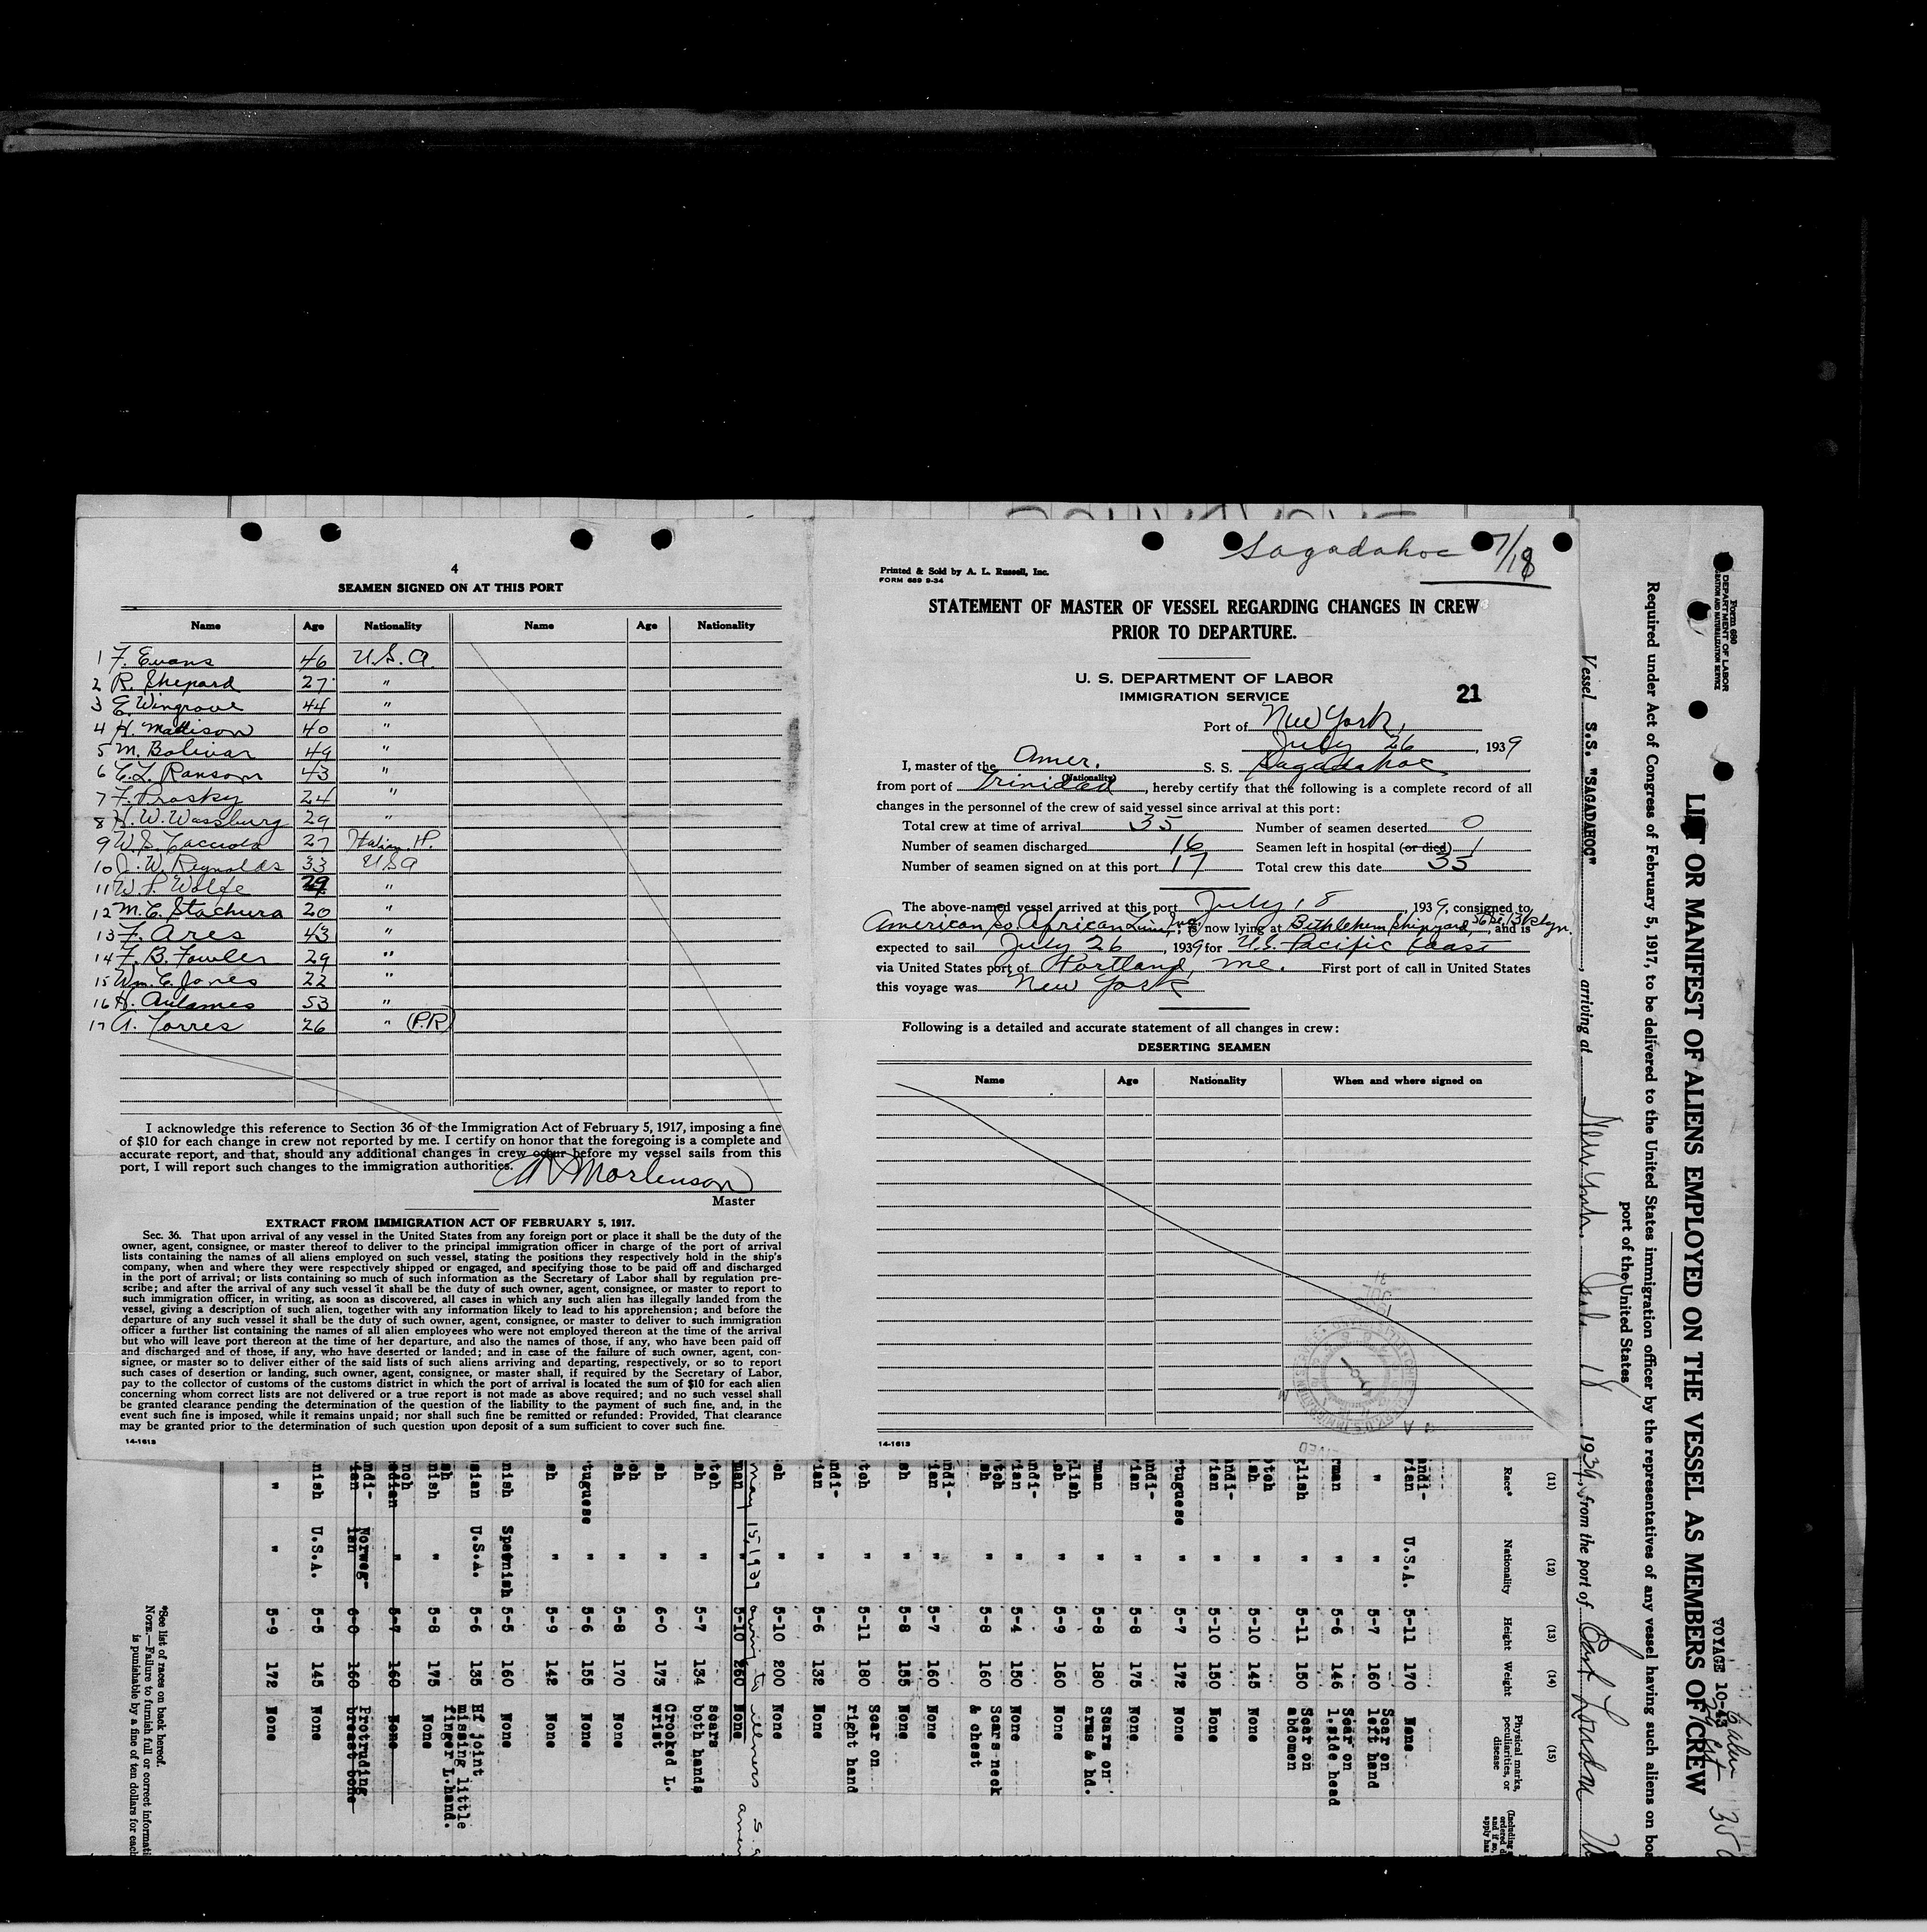 4
SEAMEN SIGNED ON AT THIS PORT
Name Age Nationality Name Age Nationality
1 F. Evans 46 U.S.A.
2 R. Shepard 27 "
3 E. Wingrove 44 "
4 H. Madison 40 "
5 M. Bolivar 49 "
6 C.L. Ransom 43 "
7 F. Prosky 24 "
8 H.W. Wassburg 29 "
9 W.S. Cacciola 27 Italian
10 J.W. Reynolds 33 USA
11 W.P. Wolfe 29 "
12 M.C. Stachura 20 "
13 F. Ares 43 "
14 F.B. Fowler 29 "
15 Wm. C. Jones 22 "
16 H. Aulames 53 "
17 A. Torres 26 " (P.R)
I acknowledge this reference to Section 36 of the Immigration Act of February 5, 1917, imposing a fine
of $10 for each change in crew not reported by me. I certify on honor that the foregoing is a complete and
accurate report, and that, should any additional changes in crew occur before my vessel sails from this
port, I will report such changes to the immigration authorities.
Mortenson
Master
EXTRACT FROM IMMIGRATION ACT OF FEBRUARY 5, 1917.
Sec. 36. That upon arrival of any vessel in the United States from any foreign port or place it shall be the duty of the
owner, agent, consignee, or master thereof to deliver to the principal immigration officer in charge of the port of arrival
lists containing the names of all aliens employed on such vessel, stating the positions they respectively hold in the ship's
company, when and where they were respectively shipped or engaged, and specifying those to be paid off and discharged
in the port of arrival; or lists containing so much of such information as the Secretary of Labor shall by regulation pre-
scribe; and after the arrival of any such vessel it shall be the duty of such owner, agent, consignee, or master to report to
such immigration officer, in writing, as soon as discovered, all cases in which any such alien has illegally landed from the
vessel, giving a description of such alien, together with any information likely to lead to his apprehension; and before the
departure of any such vessel it shall be the duty of such owner, agent, consignee, or master to deliver to such immigration
officer a further list containing the names of all alien employees who were not employed thereon at the time of the arrival
but who will leave port thereon at the time of her departure, and also the names of those, if any, who have been paid off
and discharged and of those, if any, who have deserted or landed; and in case of the failure of such owner, agent, con-
signee, or master so to deliver either of the said lists of such aliens arriving and departing, respectively, or so to report
such cases of desertion or landing, such owner, agent, consignee, or master shall, if required by the Secretary of Labor,
pay to the collector of customs of the customs district in which the port of arrival is located the sum of $10 for each alien
concerning whom correct lists are not delivered or a true report is not made as above required; and no such vessel shall
be granted clearance pending the determination of the question of the liability to the payment of such fine, and, in the
event such fine is imposed, while it remains unpaid; nor shall such fine be remitted or refunded: Provided, That clearance
may be granted prior to the determination of such question upon deposit of a sum sufficient to cover such fine.
14-1613
Sagadahoc 7/18
Printed & Sold by A. L. Russell, Inc.
FORM 689 9-34
STATEMENT OF MASTER OF VESSEL REGARDING CHANGES IN CREW
PRIOR TO DEPARTURE.
U. S. DEPARTMENT OF LABOR
IMMIGRATION SERVICE
21
Port of New York,
July 26, 1939
I, master of the Amer. S. S. Sagadahoc
(Nationality)
from port of Trinidad, hereby certify that the following is a complete record of all
changes in the personnel of the crew of said vessel since arrival at this port:
Total crew at time of arrival 35 Number of seamen deserted 0
Number of seamen discharged 16 Seamen left in hospital (or died) 1
Number of seamen signed on at this port 17 Total crew this date 35
The above-named vessel arrived at this port July 18, 1939, consigned to
American So. African Line, Inc., is now lying at Bethlehem Shipyard, 56 St., Bklyn., and is
expected to sail July 26, 1939 for U.S. Pacific Coast
via United States port of Portland, Me. First port of call in United States
this voyage was New York
Following is a detailed and accurate statement of all changes in crew:
DESERTING SEAMEN
Name Age Nationality When and where signed on
14-1613
Form 680
DEPARTMENT OF LABOR
LIST OR MANIFEST OF ALIENS EMPLOYED ON THE VESSEL AS MEMBERS OF CREW
VOYAGE 10-43
Required under Act of Congress of February 5, 1917, to be delivered to the United States immigration officer by the representatives of any vessel having such aliens on
port of the United States
Vessel S.S. "SAGADAHOC", arriving at New York, July 18, 1939, from the port of East London
(11) (12) (13) (14) (15)
Race* Nationality Height Weight Physical marks, peculiarities, or disease
U.S.A. 5-11 170 None
" " 5-7 160 Scar on left hand
" 5-6 146 Scar on l. side head
" 5-11 150 Scar on abdomen
" 5-10 145 None
" 5-10 150 None
" 5-7 172 None
" 5-8 175 None
" 5-8 180 Scars on arms & hd.
" 5-9 160 None
" 5-4 150 None
" 5-8 160 Scars neck & chest
" 5-7 160 None
" 5-8 155 None
" 5-11 180 Scar on right hand
" 5-6 132 None
" 5-10 200 None
May 15, 1939 owing to illness
" 5-10 260 None
" 5-7 134 scars both hands
" 6-0 173 Crooked L. wrist
" 5-8 170 None
" 5-6 155 None
" 5-9 142 None
Spanish 5-5 160 None
U.S.A. 5-6 135 Hf joint missing little finger L. hand.
" 5-8 175 None
" 5-7 160 None
Norweg-ian 6-0 160 Protruding breast bone
U.S.A. 5-5 145 None
" " 5-9 172 None
*See list of races on back hereof.
NOTE.—Failure to furnish full or correct
is punishable by a fine of ten dollars for each